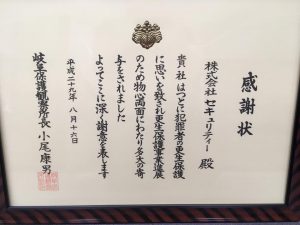 感謝状
株式会社セキュリティー 殿
貴社はつとに犯罪者の更生保護
に思いを致され更生保護事業進展
のため物心両面にわたり多大の寄
与をされました
よってここに深く謝意を表します
平成二十九年 八月十六日
岐阜保護観察所長 小尾康男